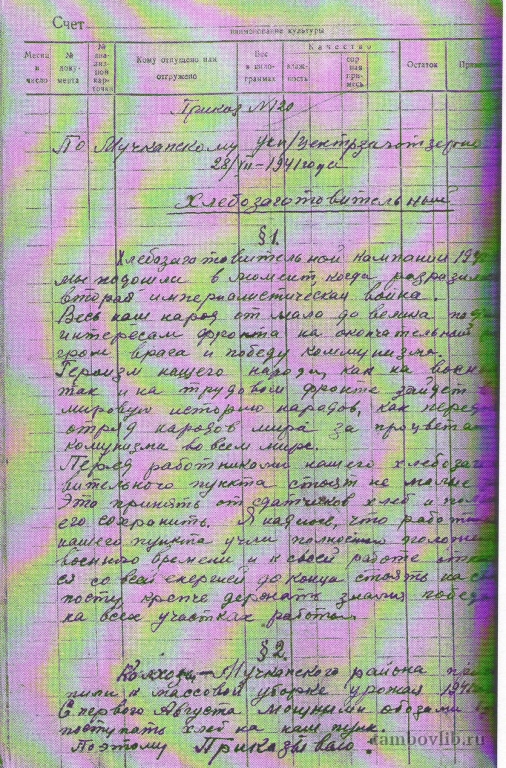 Счет
наименование культуры
Месяц и число
№ доку-мента
№ ана-лиз-ной кар-точки
Кому отпущено или отгружено
Вес в кило-граммах
Качество
влаж-ность
сор ная при-месь
Остаток
Приме
Приказ № 20
По Мучкапскому
28/VII-1941 года
Хлебозаготовительный
§ 1.
Хлебозаготовительной кампании
мы подошли в момент, когда разразилась
вторая империалистическая война.
Весь наш народ от мало до велика
интересам фронта на окончательный
врага и победу коммунизма.
Героизм нашего народа, как на военн
так и на трудовом фронте зайдет в
мировую историю народов, как передо
отряд народов мира за процветан
комунизма во всем мире.
Перед работниками нашего хлебозаго
вительного пункта стоят не малые
Это принять от сдатчиков хлеб и полн
его сохранить. Я надеюсь, что работн
нашего пункта учли полностью положен
военного времени и к своей работе отн
ся со всей енергией до конца стоять на св
посту крепче держать знамя победы
на всех участках работы.
§ 2.
Колхозы Мучкапского района прис
пили к массовой уборке урожая
С первого Августа мощными обозами
поступать хлеб на наш пунк.
Поэтому Приказываю:
tambovlib.ru